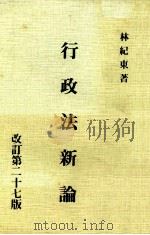 林紀東著
行政法新論
改訂第二十七版